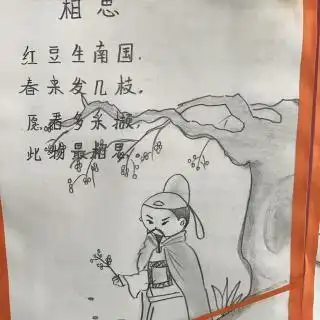 相思
红豆生南国，
春来发几枝。
愿君多采撷，
此物最相思